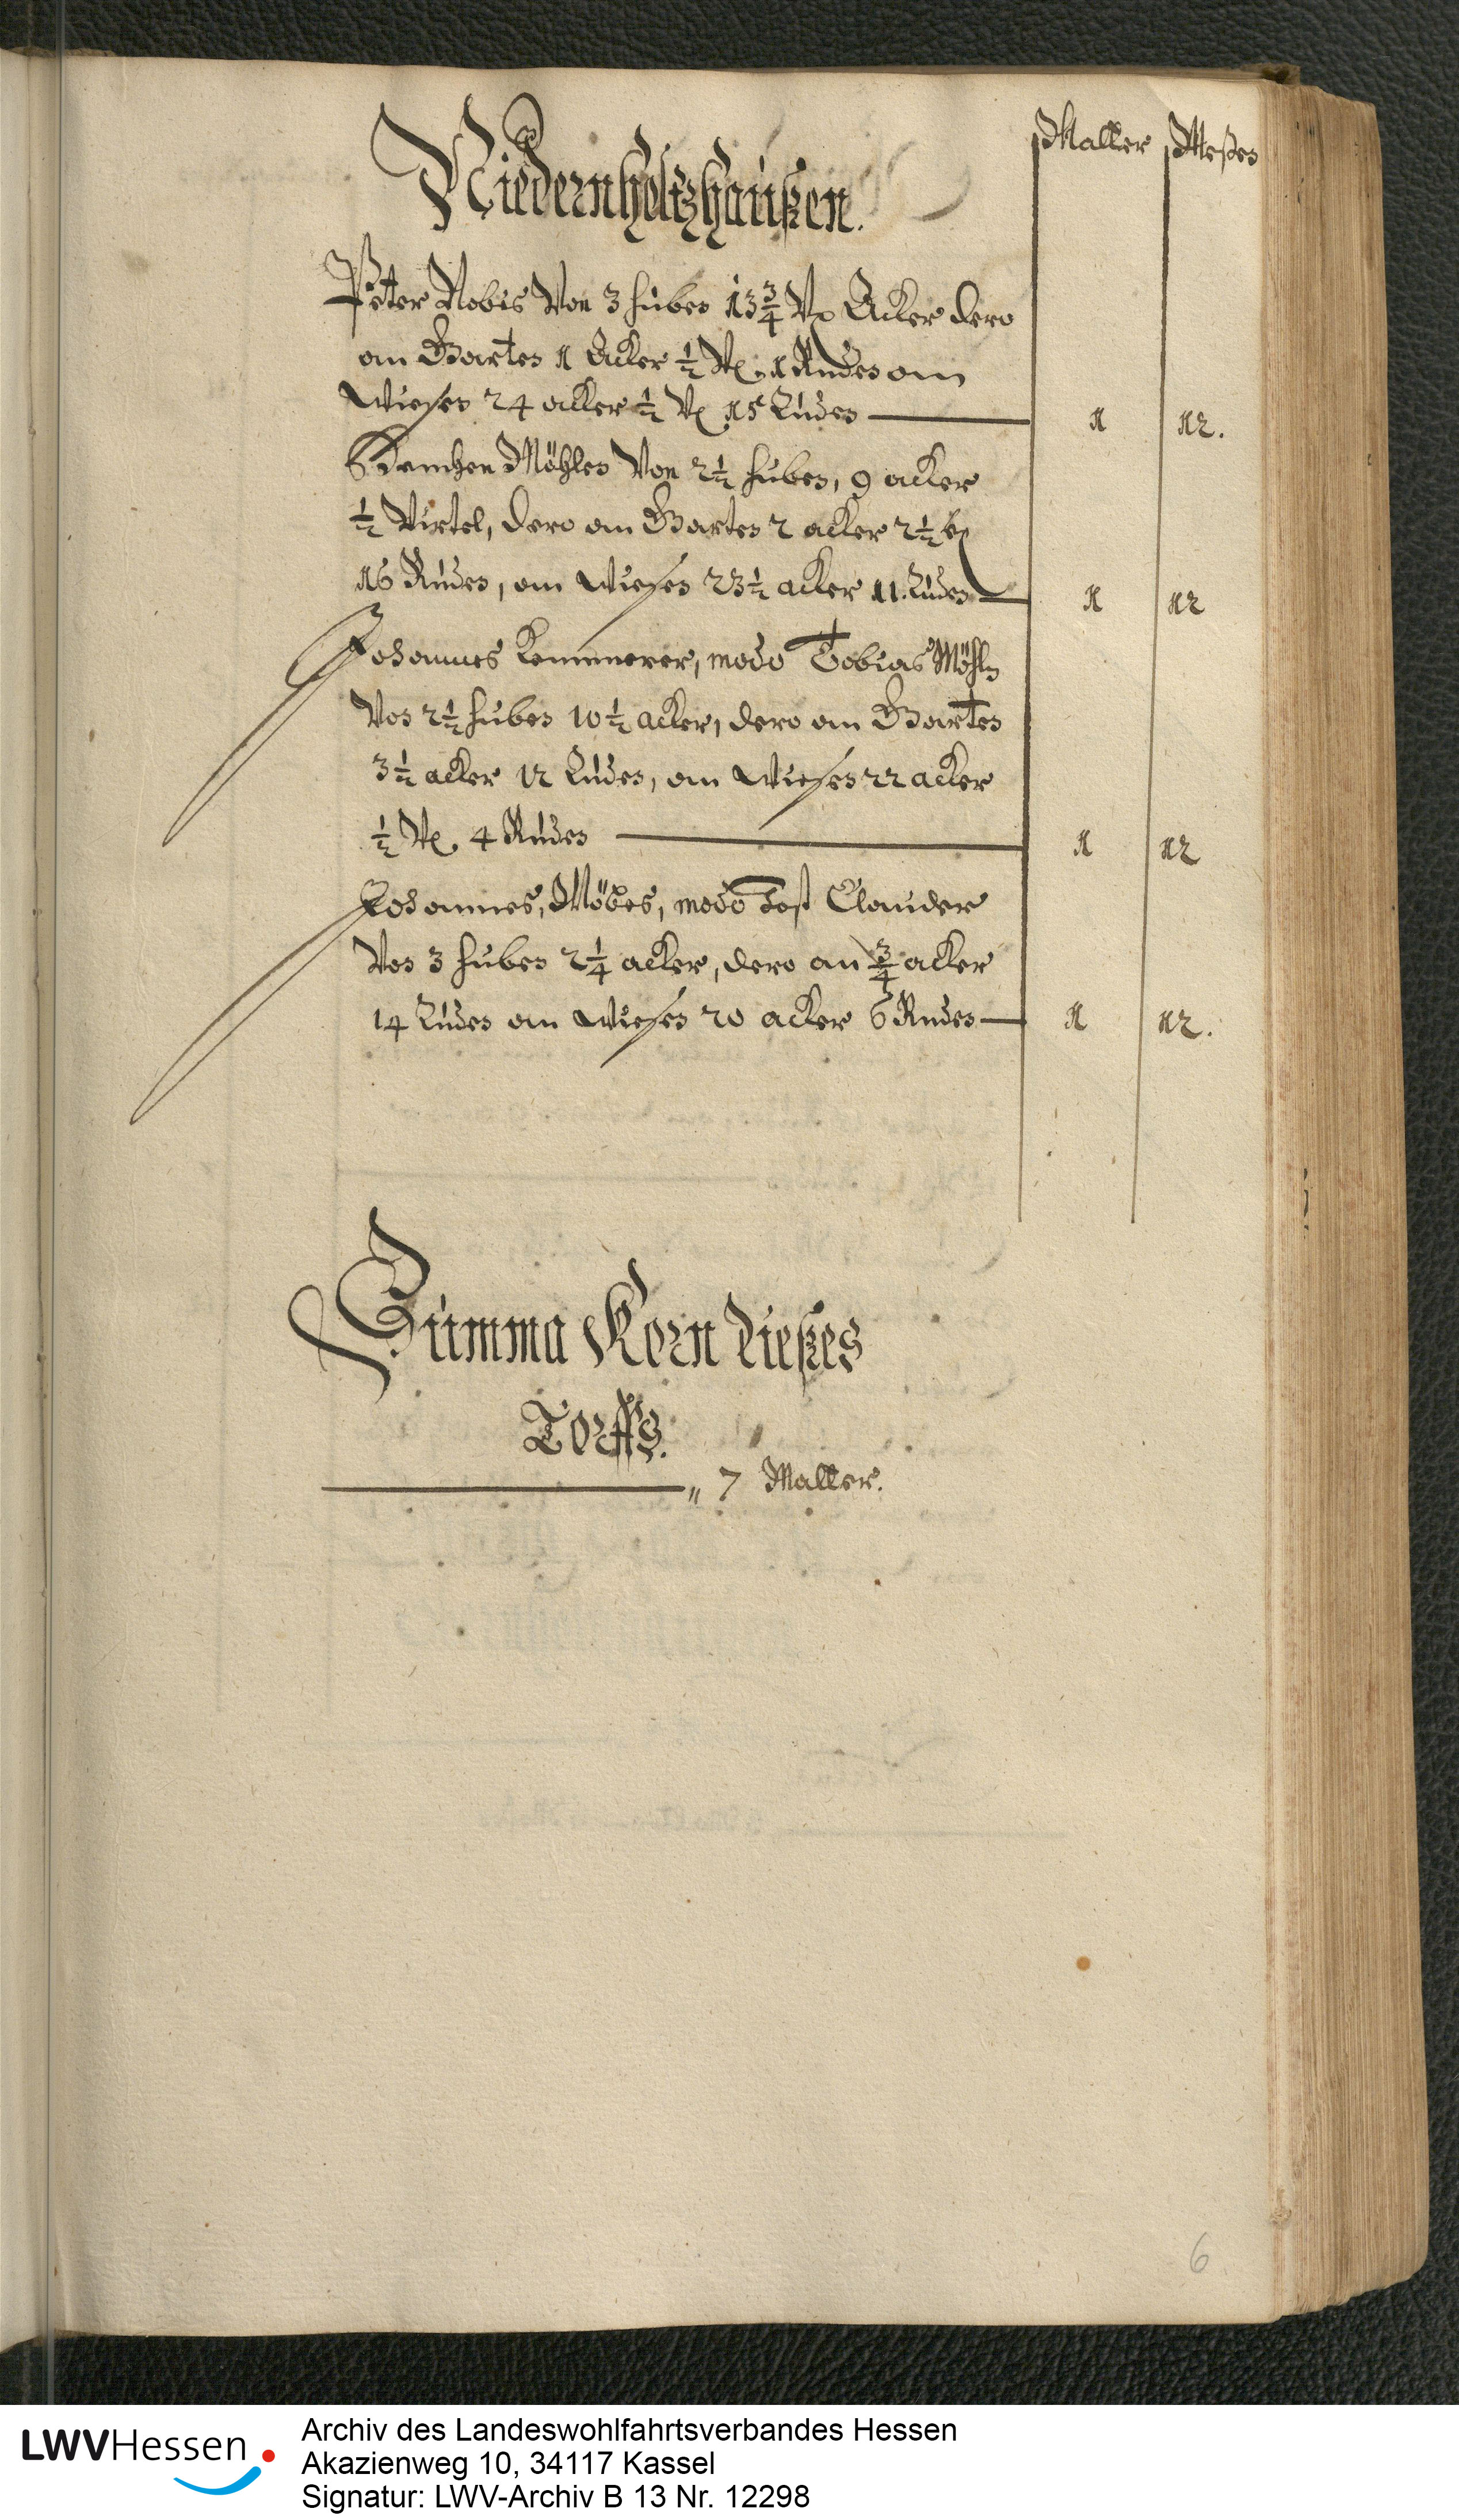 Malter Meßen
Niedernholtzhaußen.
Peter Nobis Von 3 huben 13 3/4 Acker dero
an Garten 1 Acker 1/2 1 Ruden an
Wiesen 24 acker 1/2 15 Ruden — 1 12.
Möhlen Von 2 1/2 huben, 9 acker
1/2 Virtel, dero an Garten 2 acker 2 1/2
16 Ruden, an Wiesen 23 1/2 acker 11 Ruden — 1 12
Johannes Kemmerer, modo Tobias Möhln
Von 2 1/2 huben 10 1/2 acker, dero an Garten
3 1/2 acker 12 Ruden, an Wiesen 22 acker
1/2 4 Ruden — 1 12
Johannes, modo Jost Clauder
Von 3 huben 2 1/4 acker, dero an 3/4 acker
14 Ruden an Wiesen 20 acker 6 Ruden — 1 12.
Summa Korn dießes
Torffs.
— „ 7 Malter.
6
LWVHessen
Archiv des Landeswohlfahrtsverbandes Hessen
Akazienweg 10, 34117 Kassel
Signatur: LWV-Archiv B 13 Nr. 12298